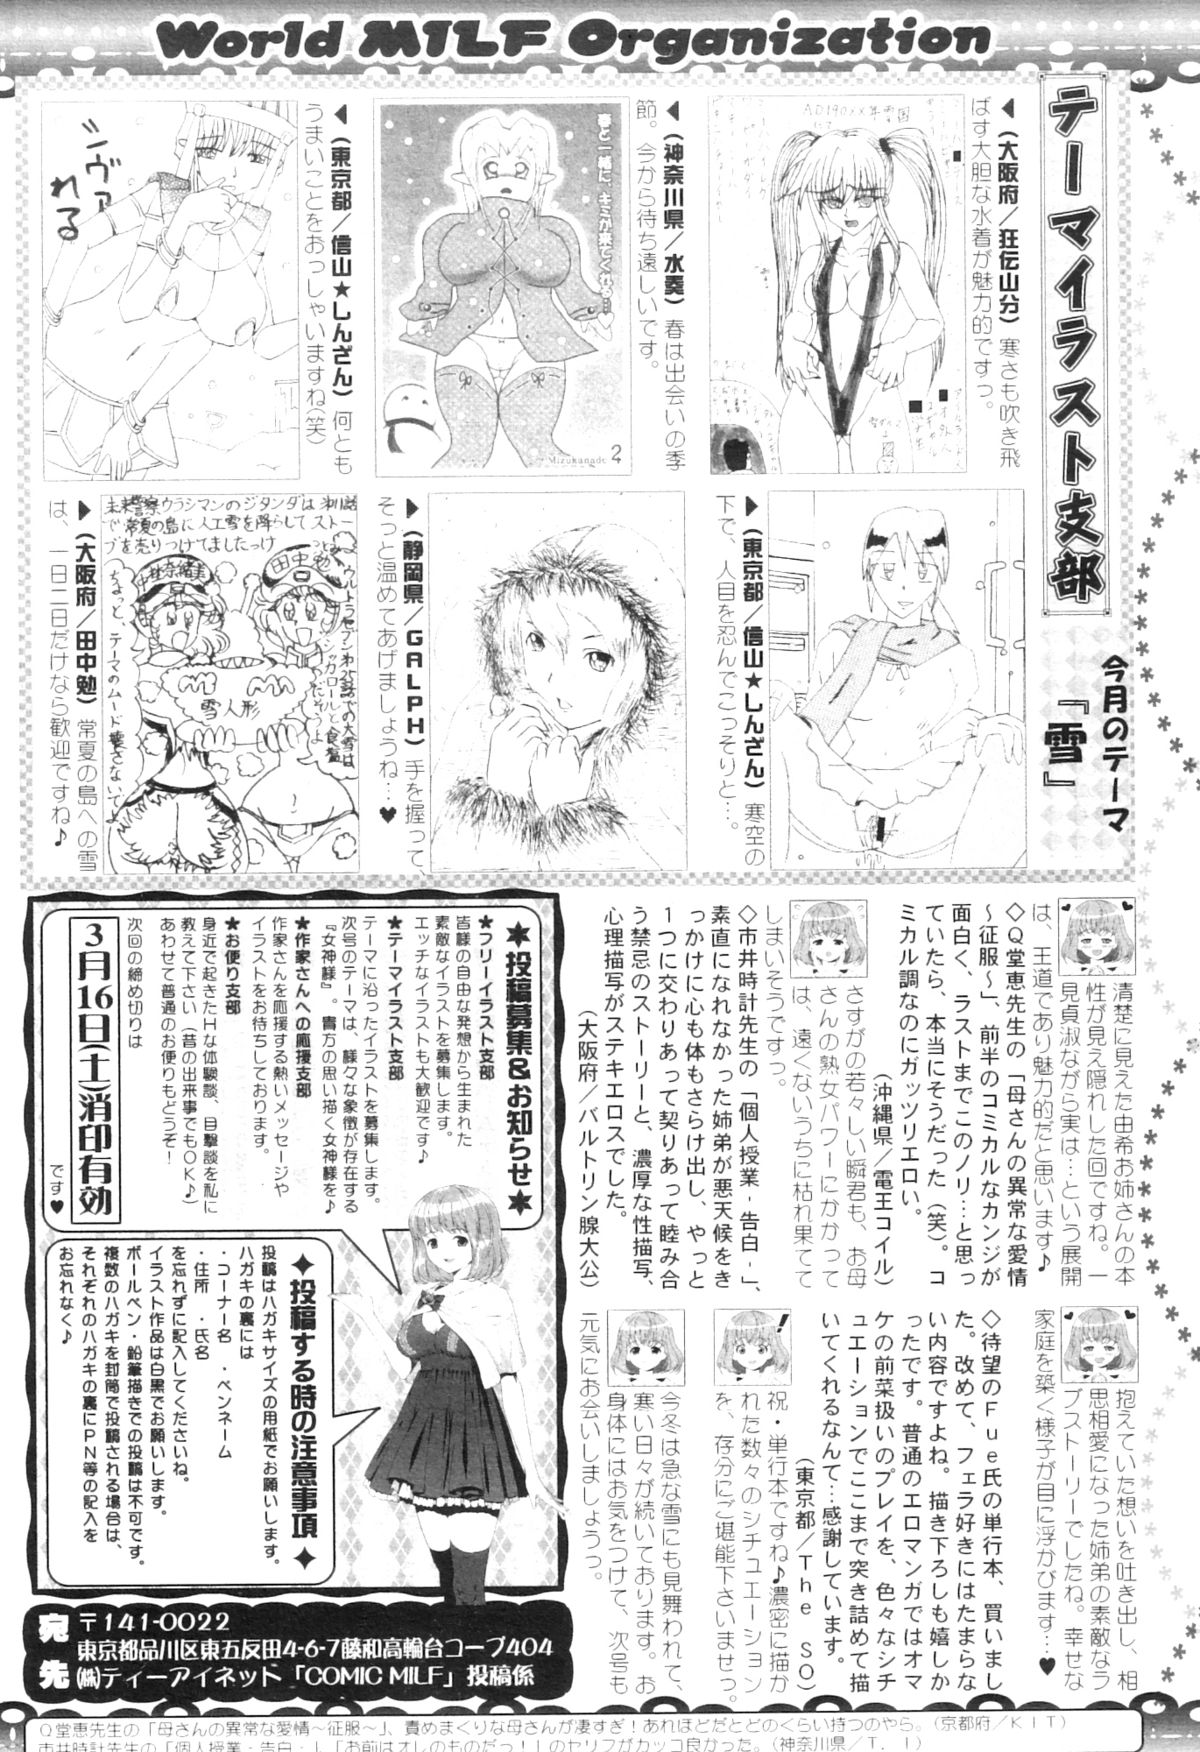 World MILF Organization
テーマイラスト支部
今月のテーマ
『雪』
◀(大阪府/狂伝山分) 寒さも吹き飛
ばす大胆な水着が魅力的ですっ。
◀(神奈川県/水奏) 春は出会いの季
節。今から待ち遠しいです。
春と一緒だ、キミが来てくれる…
Mizukanade 2
◀(東京都/信山★しんざん) 何とも
うまいことをおっしゃいますね(笑)
シヴァ
れる
▶(東京都/信山★しんざん) 寒空の
下で、人目を忍んでこっそりと…。
▶(静岡県/GALPH) 手を握って、
そっと温めてあげましょうね…♥
▶(大阪府/田中勉) 常夏の島への雪
は、一日二日だけなら歓迎ですね♪
未来警察ウラシマンのジタンダは
で常夏の島に人工雪を降らしてストー
ブを売りつけてましたっけ
田中勉
雪人形
ちょっと、テーマのムード壊さないでよ
清楚に見えた由希お姉さんの本
性が見え隠れした回ですね。一
見貞淑ながら実は…という展開
は、王道であり魅力的だと思います♪
◇Q堂恵先生の「母さんの異常な愛情
~征服~」、前半のコミカルなカンジが
面白く、ラストまでこのノリ…と思っ
ていたら、本当にそうだった(笑)。コ
ミカル調なのにガッツリエロい。
(沖縄県/電王コイル)
さすがの若々しい瞬君も、お母
さんの熟女パワーにかかって
は、遠くないうちに枯れ果てて
しまいそうですっ。
◇市井時計先生の「個人授業-告白-」、
素直になれなかった姉弟が悪天候をき
っかけに心も体もさらけ出し、やっと
1つに交わりあって契りあって睦み合
う禁忌のストーリーと、濃厚な性描写、
心理描写がステキエロスでした。
(大阪府/バルトリン腺大公)
抱えていた想いを吐き出し、相
思相愛になった姉弟の素敵なラ
ブストーリーでしたね。幸せな
家庭を築く様子が目に浮かびます…♥
◇待望のFue氏の単行本、買いまし
た。改めて、フェラ好きにはたまらな
い内容ですよね。描き下ろしも嬉しか
ったです。普通のエロマンガではオマ
ケの前菜扱いのプレイを、色々なシチ
ュエーションでここまで突き詰めて描
いてくれるなんて…感謝しています。
(東京都/The SO)
祝・単行本ですね♪濃密に描か
れた数々のシチュエーション
を、存分にご堪能下さいませっ。
今冬は急な雪にも見舞われて、
寒い日々が続いております。お
身体にはお気をつけて、次号も
元気にお会いしましょうっ。
★投稿募集&お知らせ★
★フリーイラスト支部
皆様の自由な発想から生まれた
素敵なイラストを募集します。
エッチなイラストも大歓迎です♪
★テーマイラスト支部
テーマに沿ったイラストを募集します。
次号のテーマは、様々な象徴が存在する
『女神様』。貴方の思い描く女神様を♪
★作家さんへの応援支部
作家さんを応援する熱いメッセージや
イラストをお待ちしております。
★お便り支部
身近で起きたHな体験談、目撃談を私に
教えて下さい(昔の出来事でもOK♪)
あわせて普通のお便りもどうぞ!
次回の締め切りは
3月16日(土)消印有効
です♥
✦投稿する時の注意事項✦
投稿はハガキサイズの用紙でお願いします。
ハガキの裏には
・コーナー名 ・ペンネーム
・住所 ・氏名
を忘れずに記入してくださいね。
イラスト作品は白黒でお願いします。
ボールペン・鉛筆描きでの投稿は不可です。
複数のハガキを封筒で投稿される場合は、
それぞれのハガキの裏にPN等の記入を
お忘れなく♪
宛先
〒141-0022
東京都品川区東五反田4-6-7藤和高輪台コープ404
(株)ティーアイネット「COMIC MILF」投稿係
Q堂恵先生の「母さんの異常な愛情~征服~」、責めまくりな母さんが凄すぎ!あれほどだとどのくらい持つのやら。(京都府/KIT)
市井時計先生の「個人授業-告白-」、「お前はオレのものだっ!」のセリフがカッコ良かった。(神奈川県/T.I)